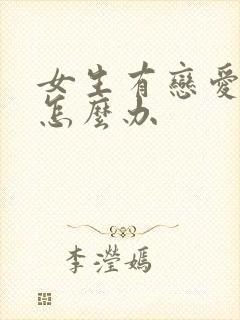 女生有戀愛
怎麼办
李瀅嫣